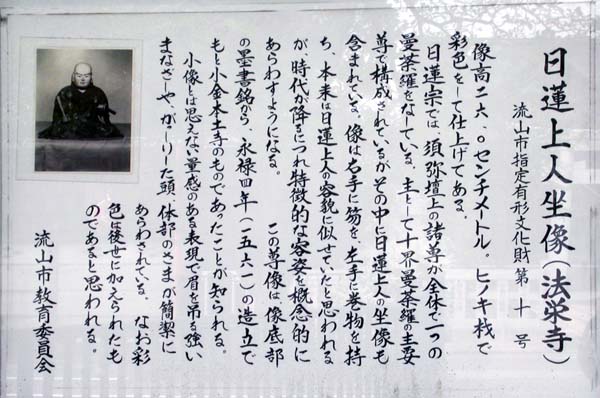 日蓮上人坐像(法栄寺)
流山市指定有形文化財 第十号
像高二六.〇センチメートル。ヒノキ材で
彩色をして仕上げてある。
日蓮宗では、須弥壇上の諸尊が全体で一つの
曼荼羅をなしている。主として十界曼荼羅の主要
尊で構成されているがその中に日蓮上人の坐像も
含まれている。像は右手に笏を、左手に巻物を持
ち、本来は日蓮上人の容貌に似せていたと思われる
が、時代が降るにつれ特徴的な容姿を概念的に
あらわすようになる。 この尊像は像底部
の墨書銘から、永禄四年(一五六一)の造立で
もと小金本土寺のものであったことが知られる。
小像とは思えない量感のある表現で眉を吊る強い
まなざしや、がっしりした頭、体部のさまが簡潔に
あらわされている。なお彩
色は後世に加えられたも
のであると思われる。
流山市教育委員会